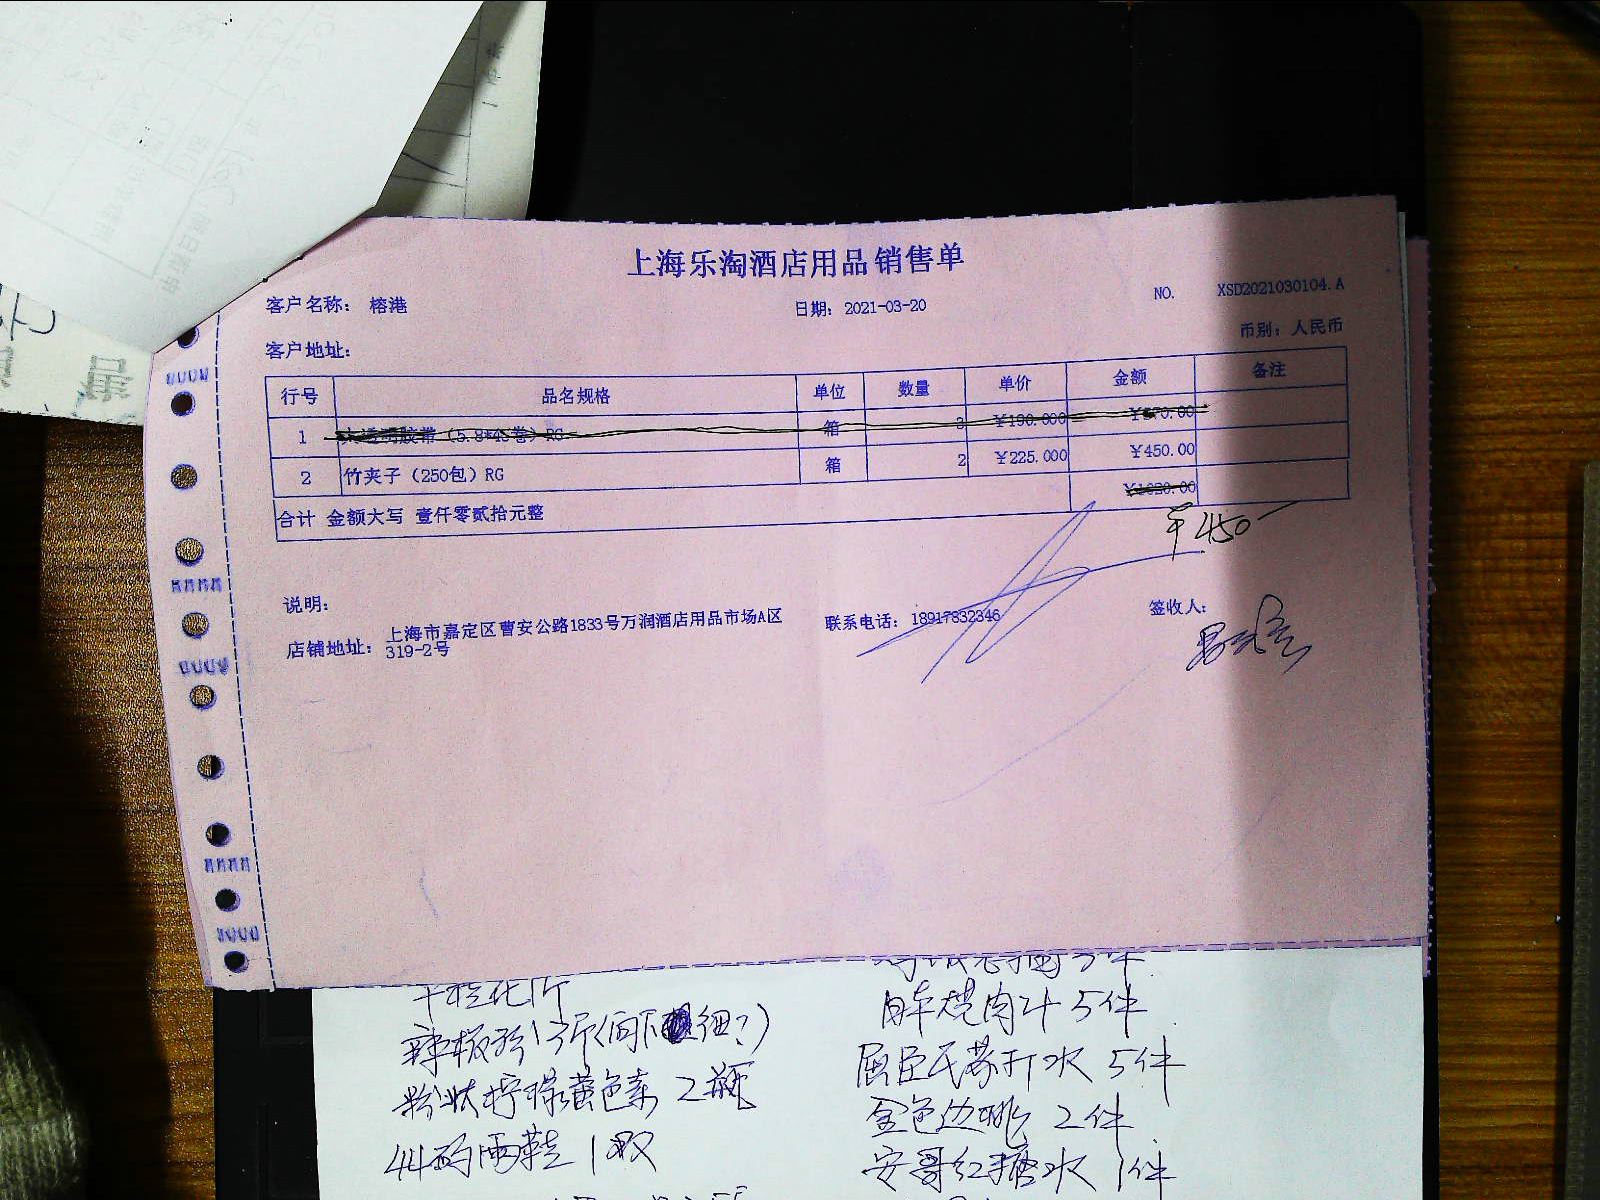 上海乐淘酒店用品销售单
客户名称： 榕港 日期：2021-03-20 NO. XSD2021030104.A
客户地址： 币别：人民币
行号 品名规格 单位 数量 单价 金额 备注
1 大透明胶带（5.8*45卷）RG 箱 3 ￥190.000 ￥570.00
2 竹夹子（250包）RG 箱 2 ￥225.000 ￥450.00
合计 金额大写 壹仟零贰拾元整 ￥1020.00
￥450
说明：
店铺地址： 上海市嘉定区曹安公路1833号万润酒店用品市场A区
319-2号
联系电话：18917832346 签收人：
干桂花1斤
辣椒粉1斤
粉状柠檬黄色素 2瓶
44码雨鞋 1双
烧肉汁 5件
屈臣氏苏打水 5件
金色边 2件
安哥红糖水 1件